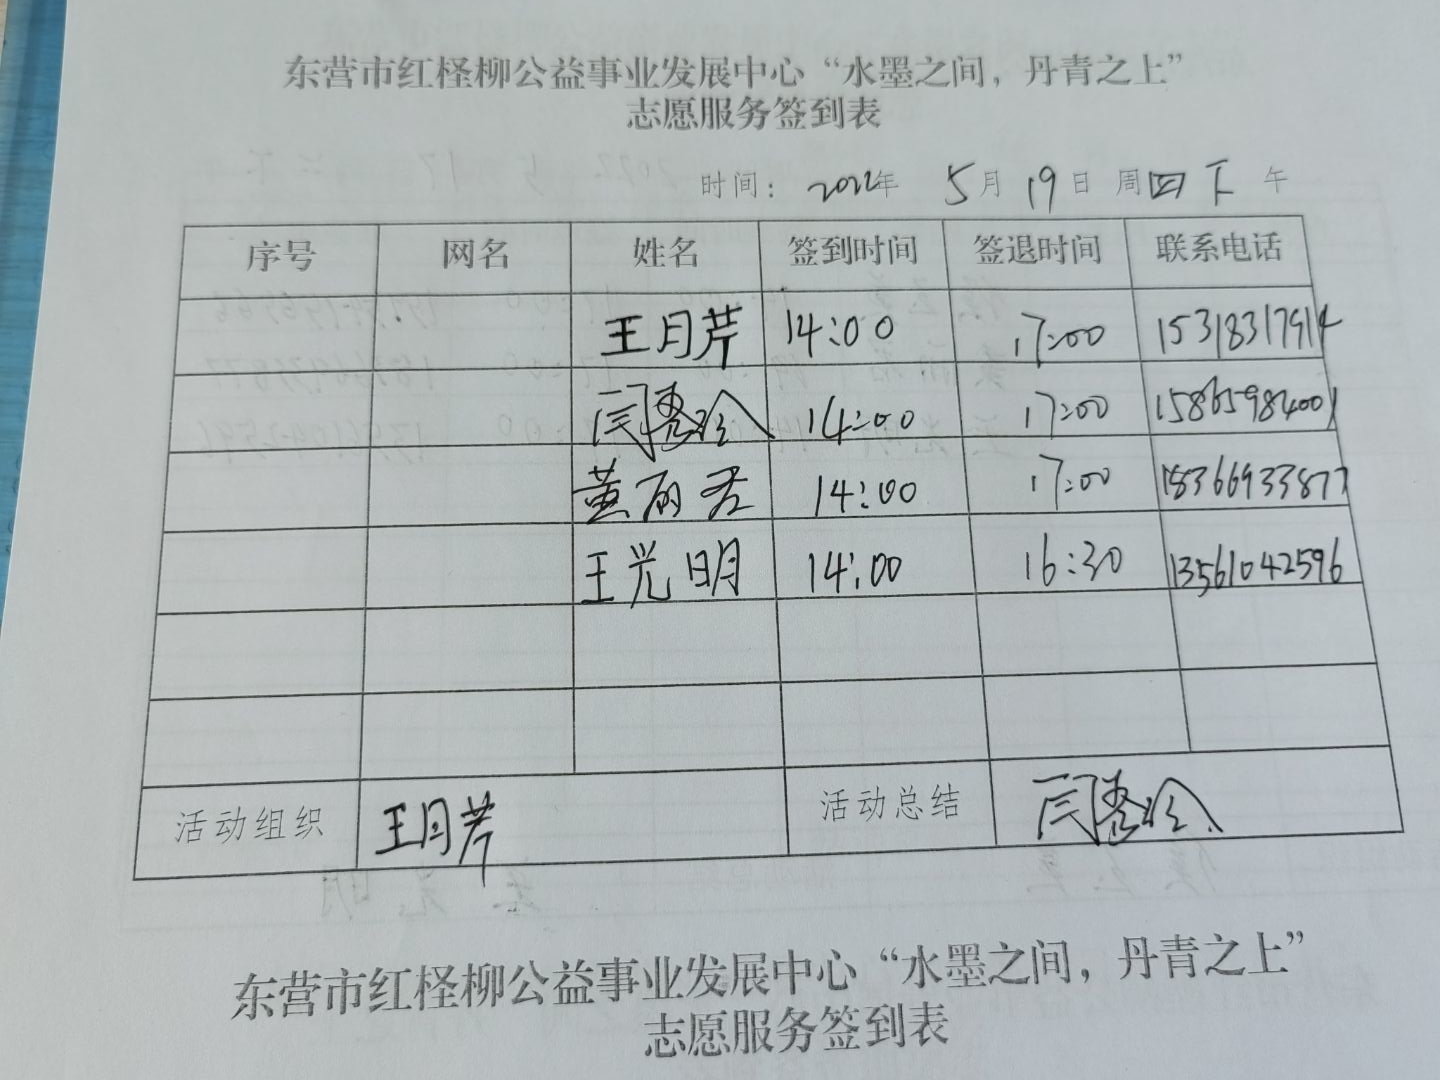 东营市红柽柳公益事业发展中心“水墨之间，丹青之上”
志愿服务签到表
时间：2022年 5月19日 周四下午
序号 网名 姓名 签到时间 签退时间 联系电话
王月芹 14:00 17:00 15318317914
闫秀玲 14:00 17:00 15865984001
黄丽君 14:00 17:00 18366933877
王光明 14:00 16:30 13561042596
活动组织 王月芹 活动总结 闫秀玲
东营市红柽柳公益事业发展中心“水墨之间，丹青之上”
志愿服务签到表